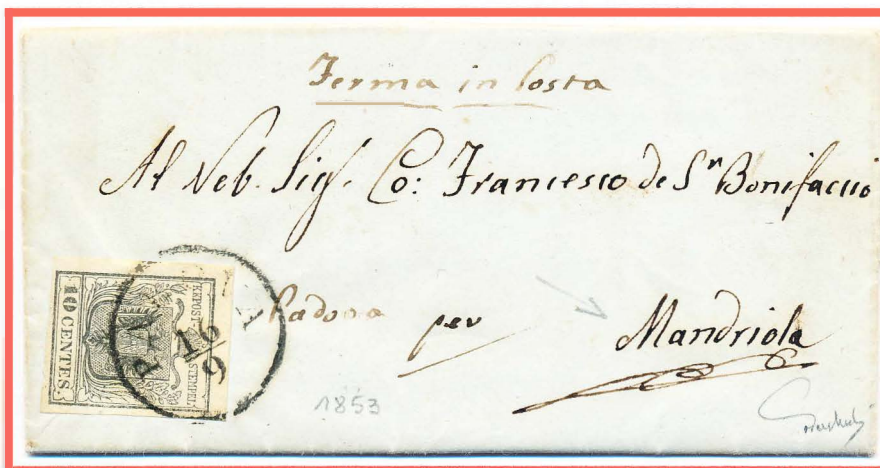 Ferma in Posta
Al Nob. Sigr. Co: Francesco de Sn Bonifaccio
Padova
per Mandriola
10 CENTES.
KK POST STEMPEL
16
9
1853